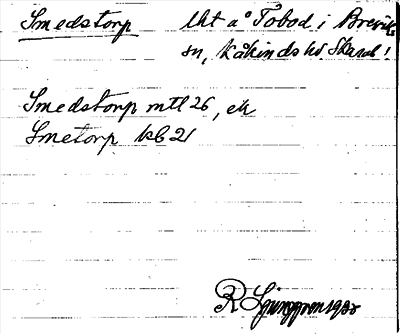 Smedstorp lht å Tobod i Breviks
sn, Kåkinds hd. Skarab!
Smedstorp mtl 26, ek
Smetorp kb 21
R Ljunggren 1920